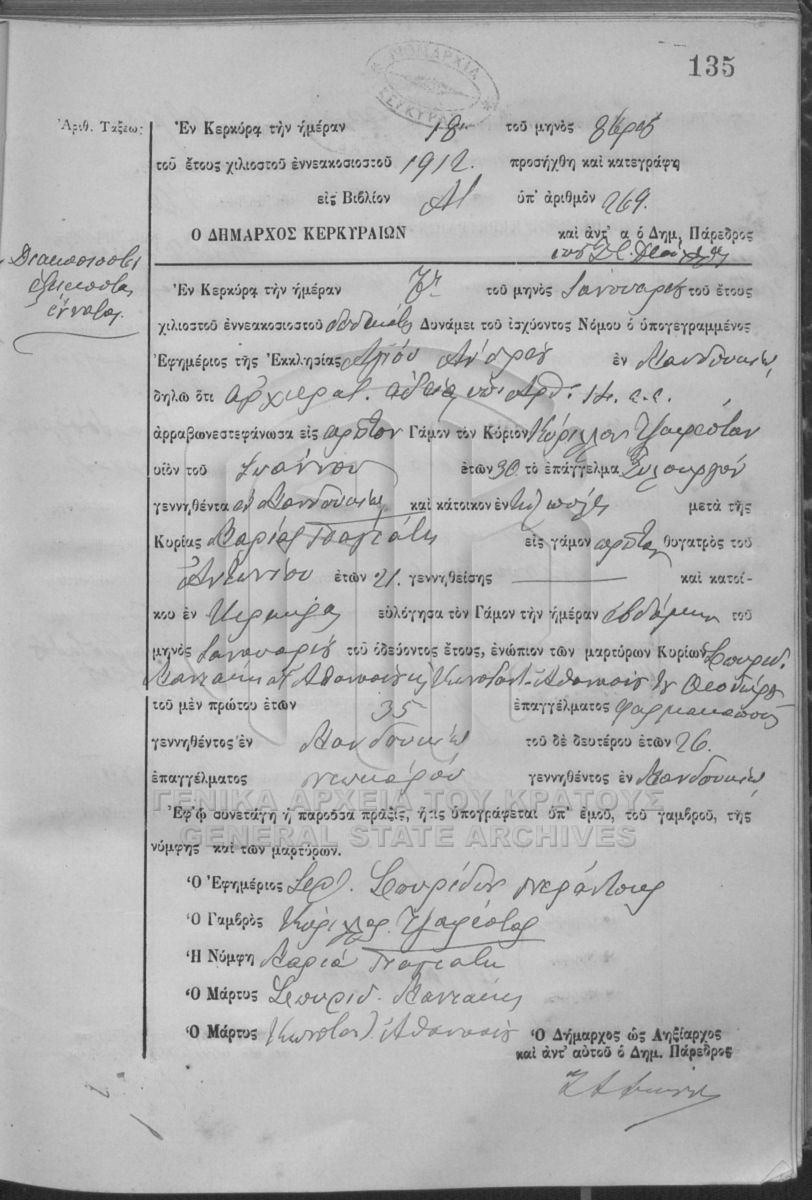 135
Ἀριθ. Τάξεως
Ἐν Κερκύρᾳ τὴν ἡμέραν 18 τοῦ μηνὸς 8βρίου
τοῦ ἔτους χιλιοστοῦ ἐννεακοσιοστοῦ 1912. προσήχθη καὶ κατεγράφη
εἰς Βιβλίον Α1 ὑπ' ἀριθμὸν 269.
Ο ΔΗΜΑΡΧΟΣ ΚΕΡΚΥΡΑΙΩΝ καὶ ἀντ' α ὁ Δημ, Πάρεδρος
Διακοσιοστὴ
ἑξηκοστὴ
ἐννάτη.
Ἐν Κερκύρᾳ τὴν ἡμέραν 7η τοῦ μηνὸς Ἰανουαρίου τοῦ ἔτους
χιλιοστοῦ ἐννεακοσιοστοῦ δωδεκάτου Δυνάμει τοῦ ἰσχύοντος Νόμου ὁ ὑπογεγραμμένος
Ἐφημέριος τῆς Ἐκκλησίας Ἁγίου Ἀνδρέου ἐν Μανδουκίῳ
δηλῶ ὅτι ἀρχιερατ. ἀδείᾳ ὑπ' ἀρθ. 14. ἐ.ἔ.
ἀρραβωνεστεφάνωσα εἰς πρῶτον Γάμον τὸν Κύριον Κύριλλον Τζαφέσταν
υἱὸν τοῦ Ἰωάννου ἐτῶν 30 τὸ ἐπάγγελμα Ξυλουργὸν
γεννηθέντα ἐν Μανδουκίῳ καὶ κάτοικον ἐν μετὰ τῆς
Κυρίας Μαρίας εἰς γάμον πρῶτον θυγατρὸς τοῦ
Ἀντωνίου ἐτῶν 21. γεννηθείσης καὶ κατοί-
κου ἐν Κερκύρᾳ εὐλόγησα τὸν Γάμον τὴν ἡμέραν ἑβδόμην τοῦ
μηνὸς Ἰανουαρίου τοῦ ὁδεύοντος ἔτους, ἐνώπιον τῶν μαρτύρων Κυρίων Σπυρίδ.
Ἀθανασίου καὶ Κωνσταντ. Ἀθανασίου Θεοδώρου
τοῦ μὲν πρώτου ἐτῶν 35 ἐπαγγέλματος φαρμακοποιοῦ
γεννηθέντος ἐν Μανδουκίῳ τοῦ δὲ δευτέρου ἐτῶν 26.
ἐπαγγέλματος γεννηθέντος ἐν Μανδουκίῳ
ΓΕΝΙΚΑ ΑΡΧΕΙΑ ΤΟΥ ΚΡΑΤΟΥΣ
Ἐφ' ᾧ συνετάγη ἡ παροῦσα πρᾶξις, ἥτις ὑπογράφεται ὑπ' ἐμοῦ, τοῦ γαμβροῦ, τῆς
GENERAL STATE ARCHIVES
νύμφης καὶ τῶν μαρτύρων.
Ὁ Ἐφημέριος Σπυρίδων
Ὁ Γαμβρὸς Κύριλλος Τζαφέστας
Ἡ Νύμφη Μαρία
Ὁ Μάρτυς Σπυρίδ.
Ὁ Μάρτυς Κωνσταντ. Ἀθανασίου
Ὁ Δήμαρχος ὡς Ληξίαρχος
καὶ ἀντ' αὐτοῦ ὁ Δημ. Πάρεδρος